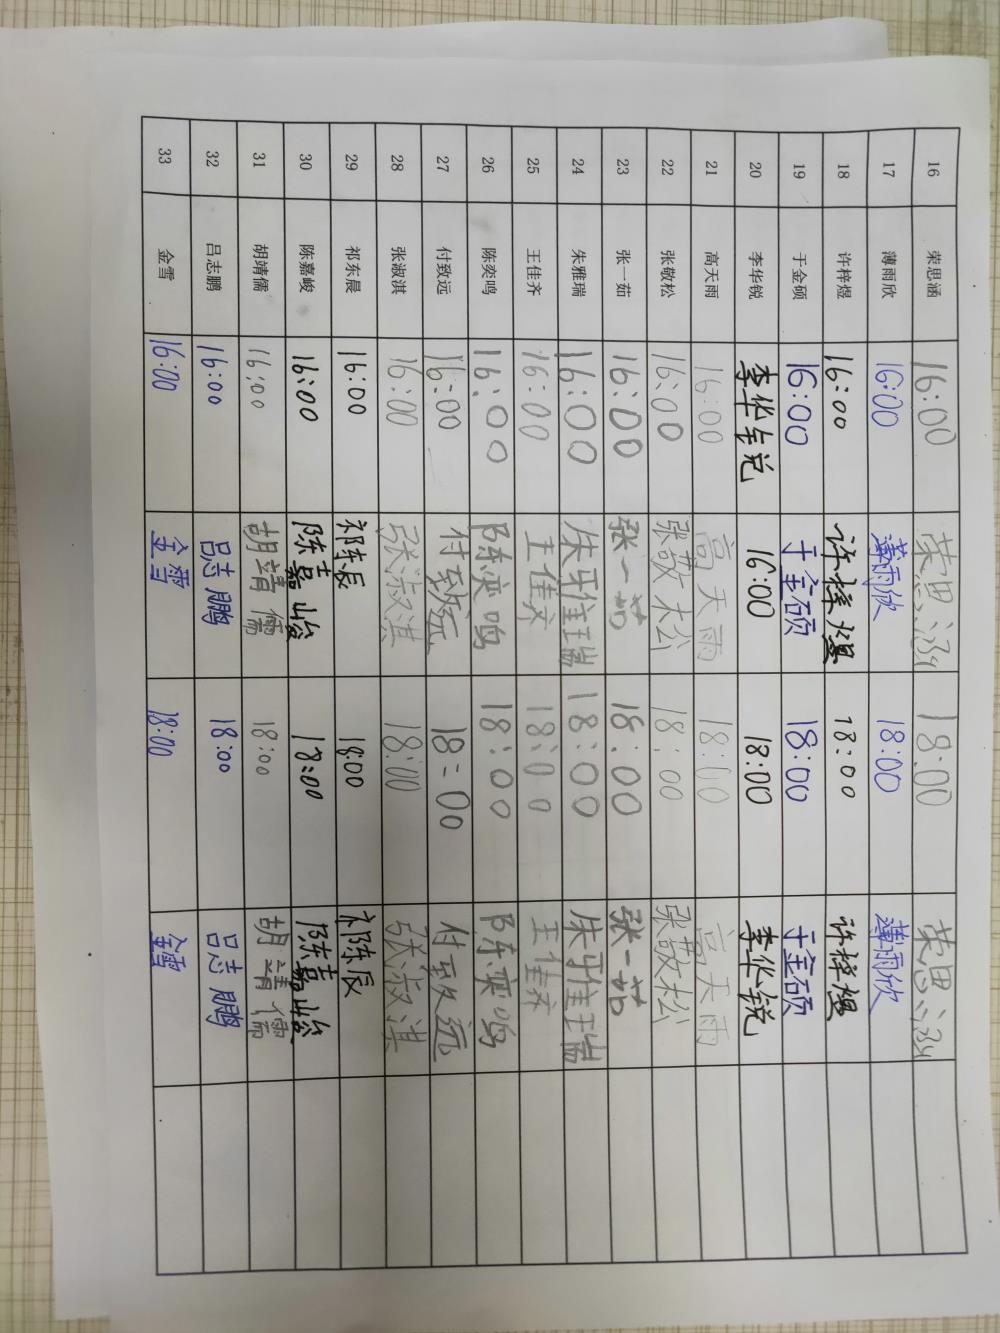 16 荣思涵 16:00 荣思涵 18:00 荣思涵
17 薄雨欣 16:00 薄雨欣 18:00 薄雨欣
18 许梓煜 16:00 许梓煜 18:00 许梓煜
19 于金硕 16:00 于金硕 18:00 于金硕
20 李华锐 李华锐 16:00 18:00 李华锐
21 高天雨 16:00 高天雨 18:00 高天雨
22 张敬松 16:00 张敬松 18:00 张敬松
23 张一茹 16:00 张一茹 18:00 张一茹
24 朱雅瑞 16:00 朱雅瑞 18:00 朱雅瑞
25 王佳齐 16:00 王佳齐 18:00 王佳齐
26 陈奕鸣 16:00 陈奕鸣 18:00 陈奕鸣
27 付致远 16:00 付致远 18:00 付致远
28 张淑淇 16:00 张淑淇 18:00 张淑淇
29 祁东晨 16:00 祁东辰 18:00 祁陈辰
30 陈嘉峻 16:00 陈嘉峻 18:00 陈嘉峻
31 胡靖儒 16:00 胡靖儒 18:00 胡靖儒
32 吕志鹏 16:00 吕志鹏 18:00 吕志鹏
33 金雪 16:00 金雪 18:00 金雪